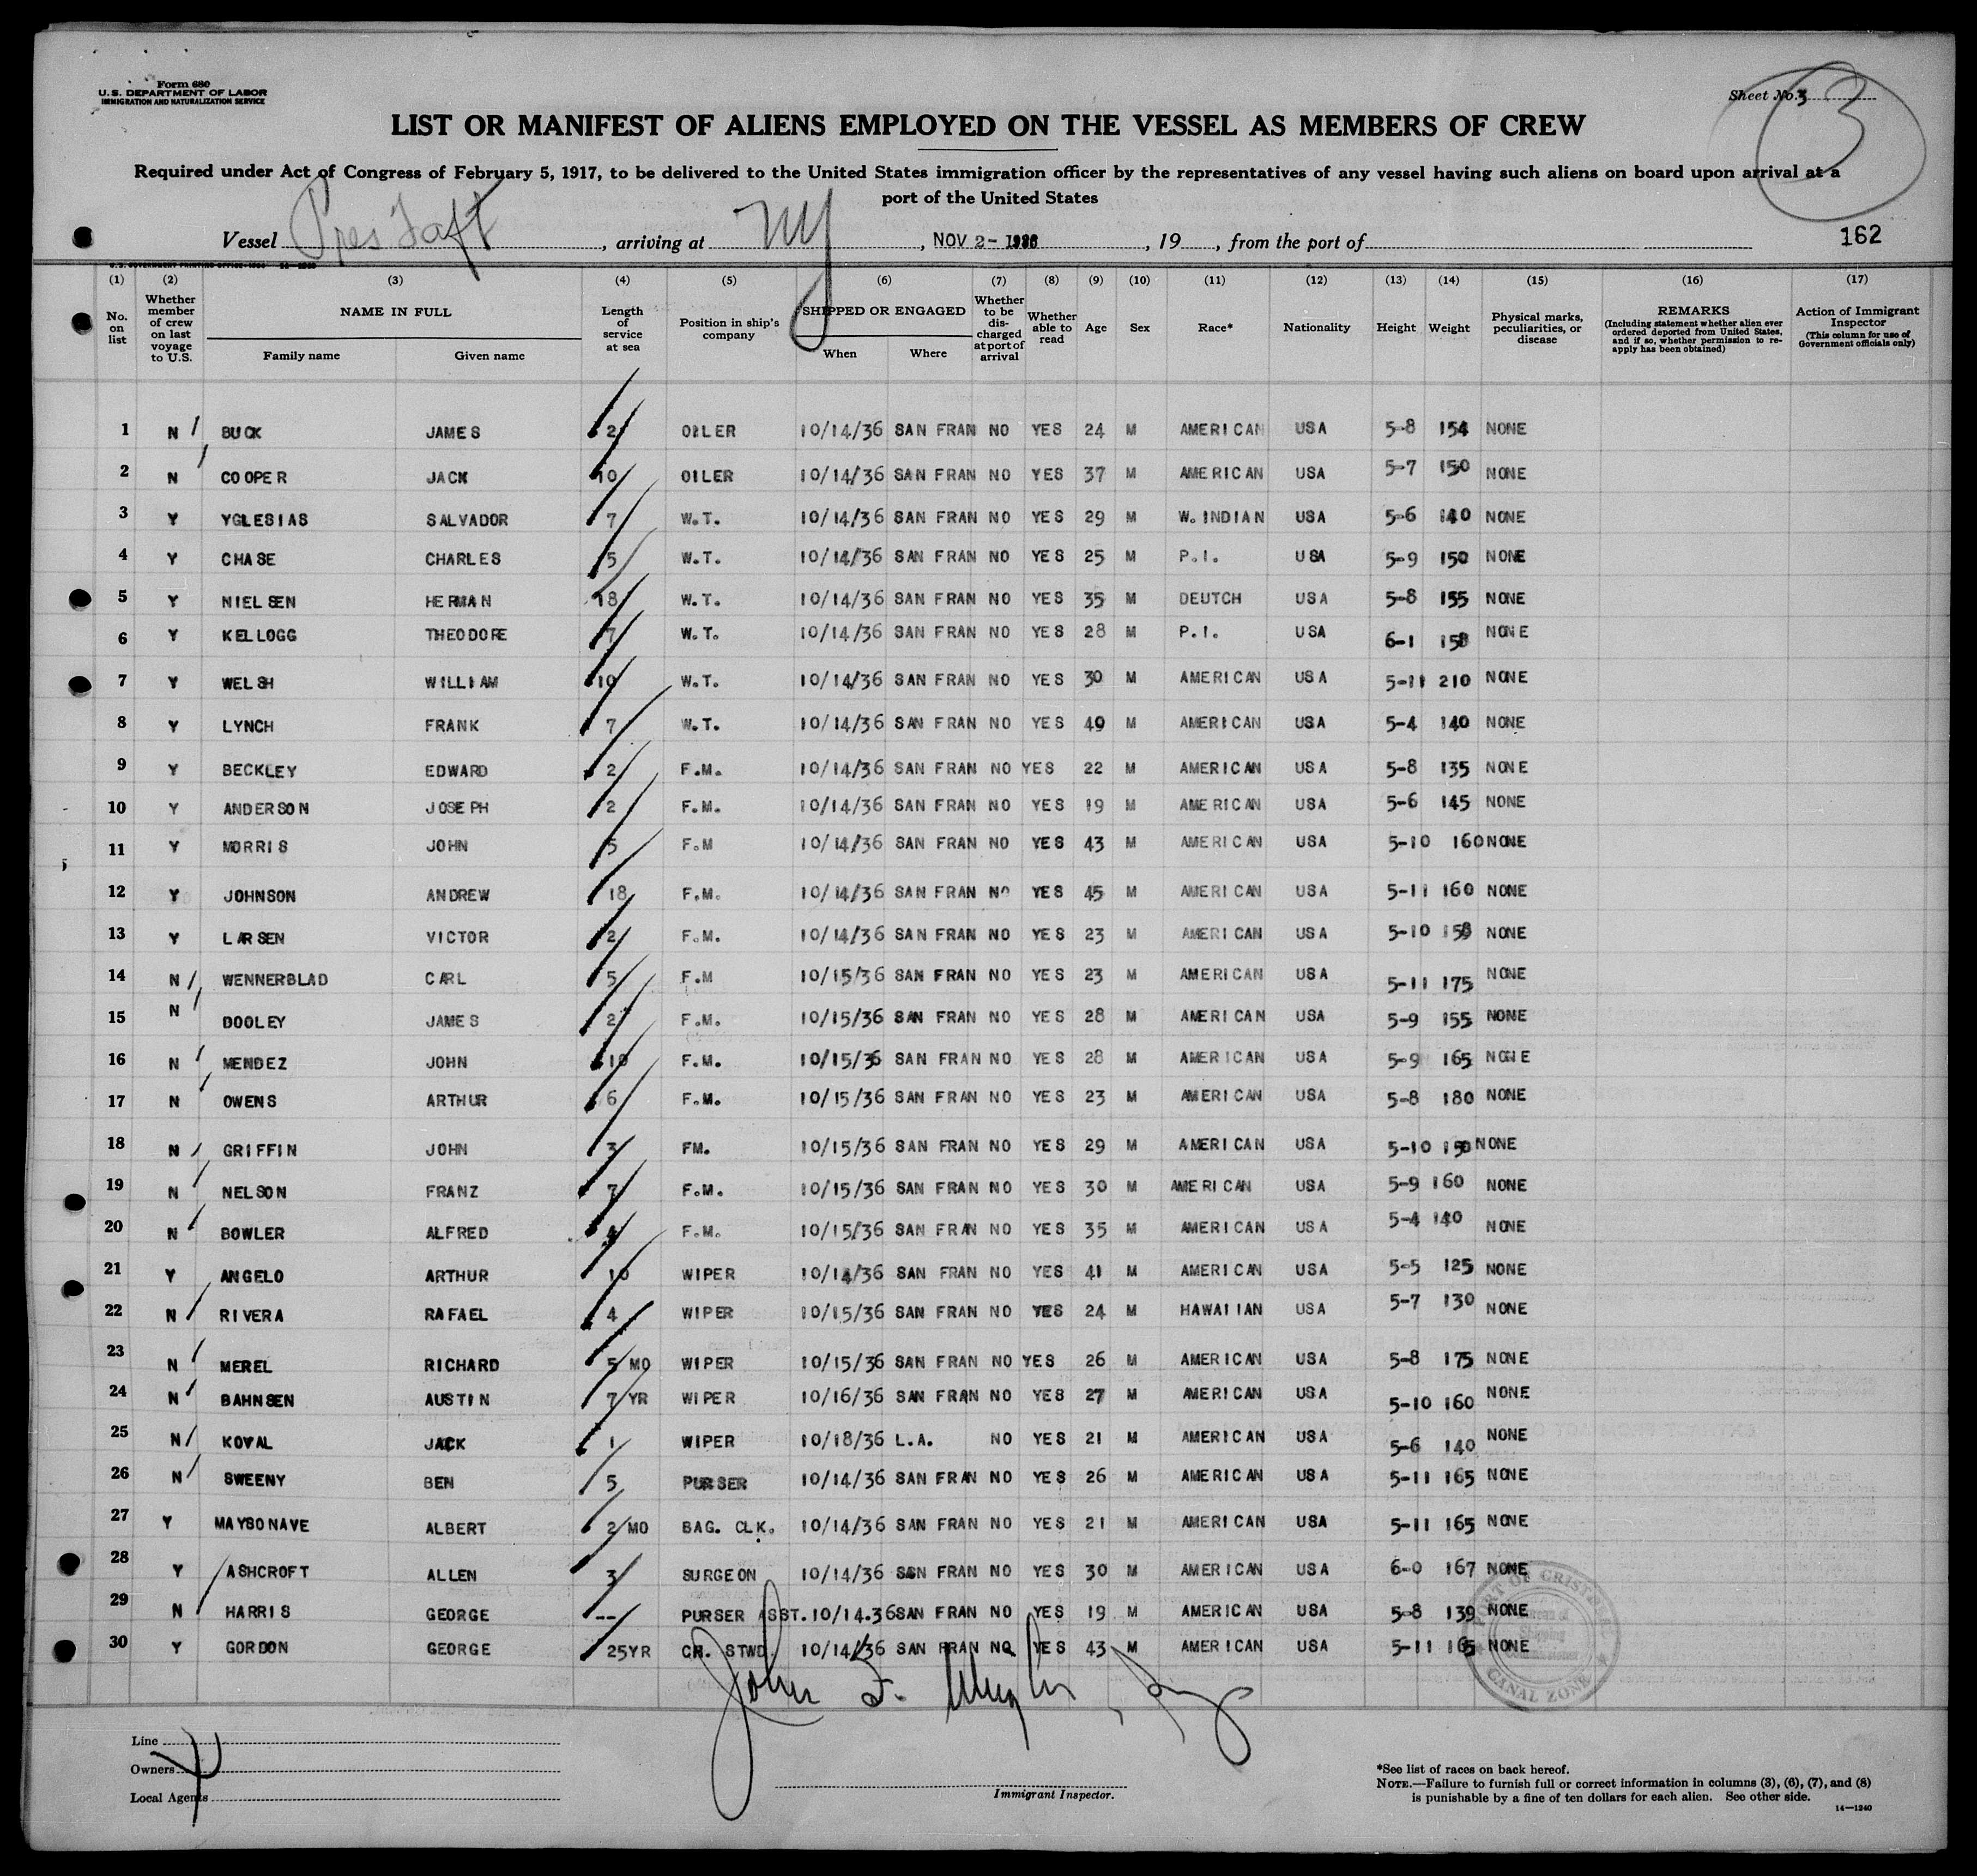 Form 680
U.S. DEPARTMENT OF LABOR
IMMIGRATION AND NATURALIZATION SERVICE
Sheet No. 3
3
LIST OR MANIFEST OF ALIENS EMPLOYED ON THE VESSEL AS MEMBERS OF CREW
Required under Act of Congress of February 5, 1917, to be delivered to the United States immigration officer by the representatives of any vessel having such aliens on board upon arrival at a
port of the United States
Vessel Pres Taft, arriving at NY, NOV 2- 1936, 19, from the port of
162
(1) (2) (3) (4) (5) (6) (7) (8) (9) (10) (11) (12) (13) (14) (15) (16) (17)
No. on list
Whether member of crew on last voyage to U.S.
NAME IN FULL
Family name Given name
Length of service at sea
Position in ship's company
SHIPPED OR ENGAGED
When Where
Whether to be discharged at port of arrival
Whether able to read
Age
Sex
Race*
Nationality
Height
Weight
Physical marks, peculiarities, or disease
REMARKS
(Including statement whether alien ever ordered deported from United States, and if so, whether permission to reapply has been obtained)
Action of Immigrant Inspector
(This column for use of Government officials only)
1 N BUCK JAMES 2 OILER 10/14/36 SAN FRAN NO YES 24 M AMERICAN USA 5-8 154 NONE
2 N COOPER JACK 10 OILER 10/14/36 SAN FRAN NO YES 37 M AMERICAN USA 5-7 150 NONE
3 Y YGLESIAS SALVADOR 7 W.T. 10/14/36 SAN FRAN NO YES 29 M W. INDIAN USA 5-6 140 NONE
4 Y CHASE CHARLES 5 W.T. 10/14/36 SAN FRAN NO YES 25 M P.I. USA 5-9 150 NONE
5 Y NIELSEN HERMAN 18 W.T. 10/14/36 SAN FRAN NO YES 35 M DEUTCH USA 5-8 155 NONE
6 Y KELLOGG THEODORE 7 W.T. 10/14/36 SAN FRAN NO YES 28 M P.I. USA 6-1 158 NONE
7 Y WELSH WILLIAM 10 W.T. 10/14/36 SAN FRAN NO YES 30 M AMERICAN USA 5-11 210 NONE
8 Y LYNCH FRANK 7 W.T. 10/14/36 SAN FRAN NO YES 40 M AMERICAN USA 5-4 140 NONE
9 Y BECKLEY EDWARD 2 F.M. 10/14/36 SAN FRAN NO YES 22 M AMERICAN USA 5-8 135 NONE
10 Y ANDERSON JOSEPH 2 F.M. 10/14/36 SAN FRAN NO YES 19 M AMERICAN USA 5-6 145 NONE
11 Y MORRIS JOHN 5 F.M 10/14/36 SAN FRAN NO YES 43 M AMERICAN USA 5-10 160 NONE
12 Y JOHNSON ANDREW 18 F.M. 10/14/36 SAN FRAN NO YES 45 M AMERICAN USA 5-11 160 NONE
13 Y LARSEN VICTOR 2 F.M. 10/14/36 SAN FRAN NO YES 23 M AMERICAN USA 5-10 158 NONE
14 N WENNERBLAD CARL 5 F.M 10/15/36 SAN FRAN NO YES 23 M AMERICAN USA 5-11 175 NONE
15 N DOOLEY JAMES 2 F.M. 10/15/36 SAN FRAN NO YES 28 M AMERICAN USA 5-9 155 NONE
16 N MENDEZ JOHN 10 F.M. 10/15/36 SAN FRAN NO YES 28 M AMERICAN USA 5-9 165 NONE
17 N OWENS ARTHUR 6 F.M. 10/15/36 SAN FRAN NO YES 23 M AMERICAN USA 5-8 180 NONE
18 N GRIFFIN JOHN 3 FM. 10/15/36 SAN FRAN NO YES 29 M AMERICAN USA 5-10 150 NONE
19 N NELSON FRANZ 7 F.M. 10/15/36 SAN FRAN NO YES 30 M AMERICAN USA 5-9 160 NONE
20 N BOWLER ALFRED 4 F.M. 10/15/36 SAN FRAN NO YES 35 M AMERICAN USA 5-4 140 NONE
21 Y ANGELO ARTHUR 10 WIPER 10/14/36 SAN FRAN NO YES 41 M AMERICAN USA 5-5 125 NONE
22 N RIVERA RAFAEL 4 WIPER 10/15/36 SAN FRAN NO YES 24 M HAWAIIAN USA 5-7 130 NONE
23 N MEREL RICHARD 5 MO WIPER 10/15/36 SAN FRAN NO YES 26 M AMERICAN USA 5-8 175 NONE
24 N BAHNSEN AUSTIN 7 YR WIPER 10/16/36 SAN FRAN NO YES 27 M AMERICAN USA 5-10 160 NONE
25 N KOVAL JACK 1 WIPER 10/18/36 L.A. NO YES 21 M AMERICAN USA 5-6 140 NONE
26 N SWEENY BEN 5 PURSER 10/14/36 SAN FRAN NO YES 26 M AMERICAN USA 5-11 165 NONE
27 Y MAYSONAVE ALBERT 2 MO BAG. CLK. 10/14/36 SAN FRAN NO YES 21 M AMERICAN USA 5-11 165 NONE
28 Y ASHCROFT ALLEN 3 SURGEON 10/14/36 SAN FRAN NO YES 30 M AMERICAN USA 6-0 167 NONE
29 N HARRIS GEORGE -- PURSER ASST. 10/14.36 SAN FRAN NO YES 19 M AMERICAN USA 5-8 139 NONE
30 Y GORDON GEORGE 25YR CH. STWD. 10/14/36 SAN FRAN NO YES 43 M AMERICAN USA 5-11 165 NONE
PORT OF CRISTOBAL
Shipping Commissioner
CANAL ZONE
John F.
Line
Owners
Local Agents
Immigrant Inspector.
*See list of races on back hereof.
NOTE.—Failure to furnish full or correct information in columns (3), (6), (7), and (8)
is punishable by a fine of ten dollars for each alien. See other side.
14—1240